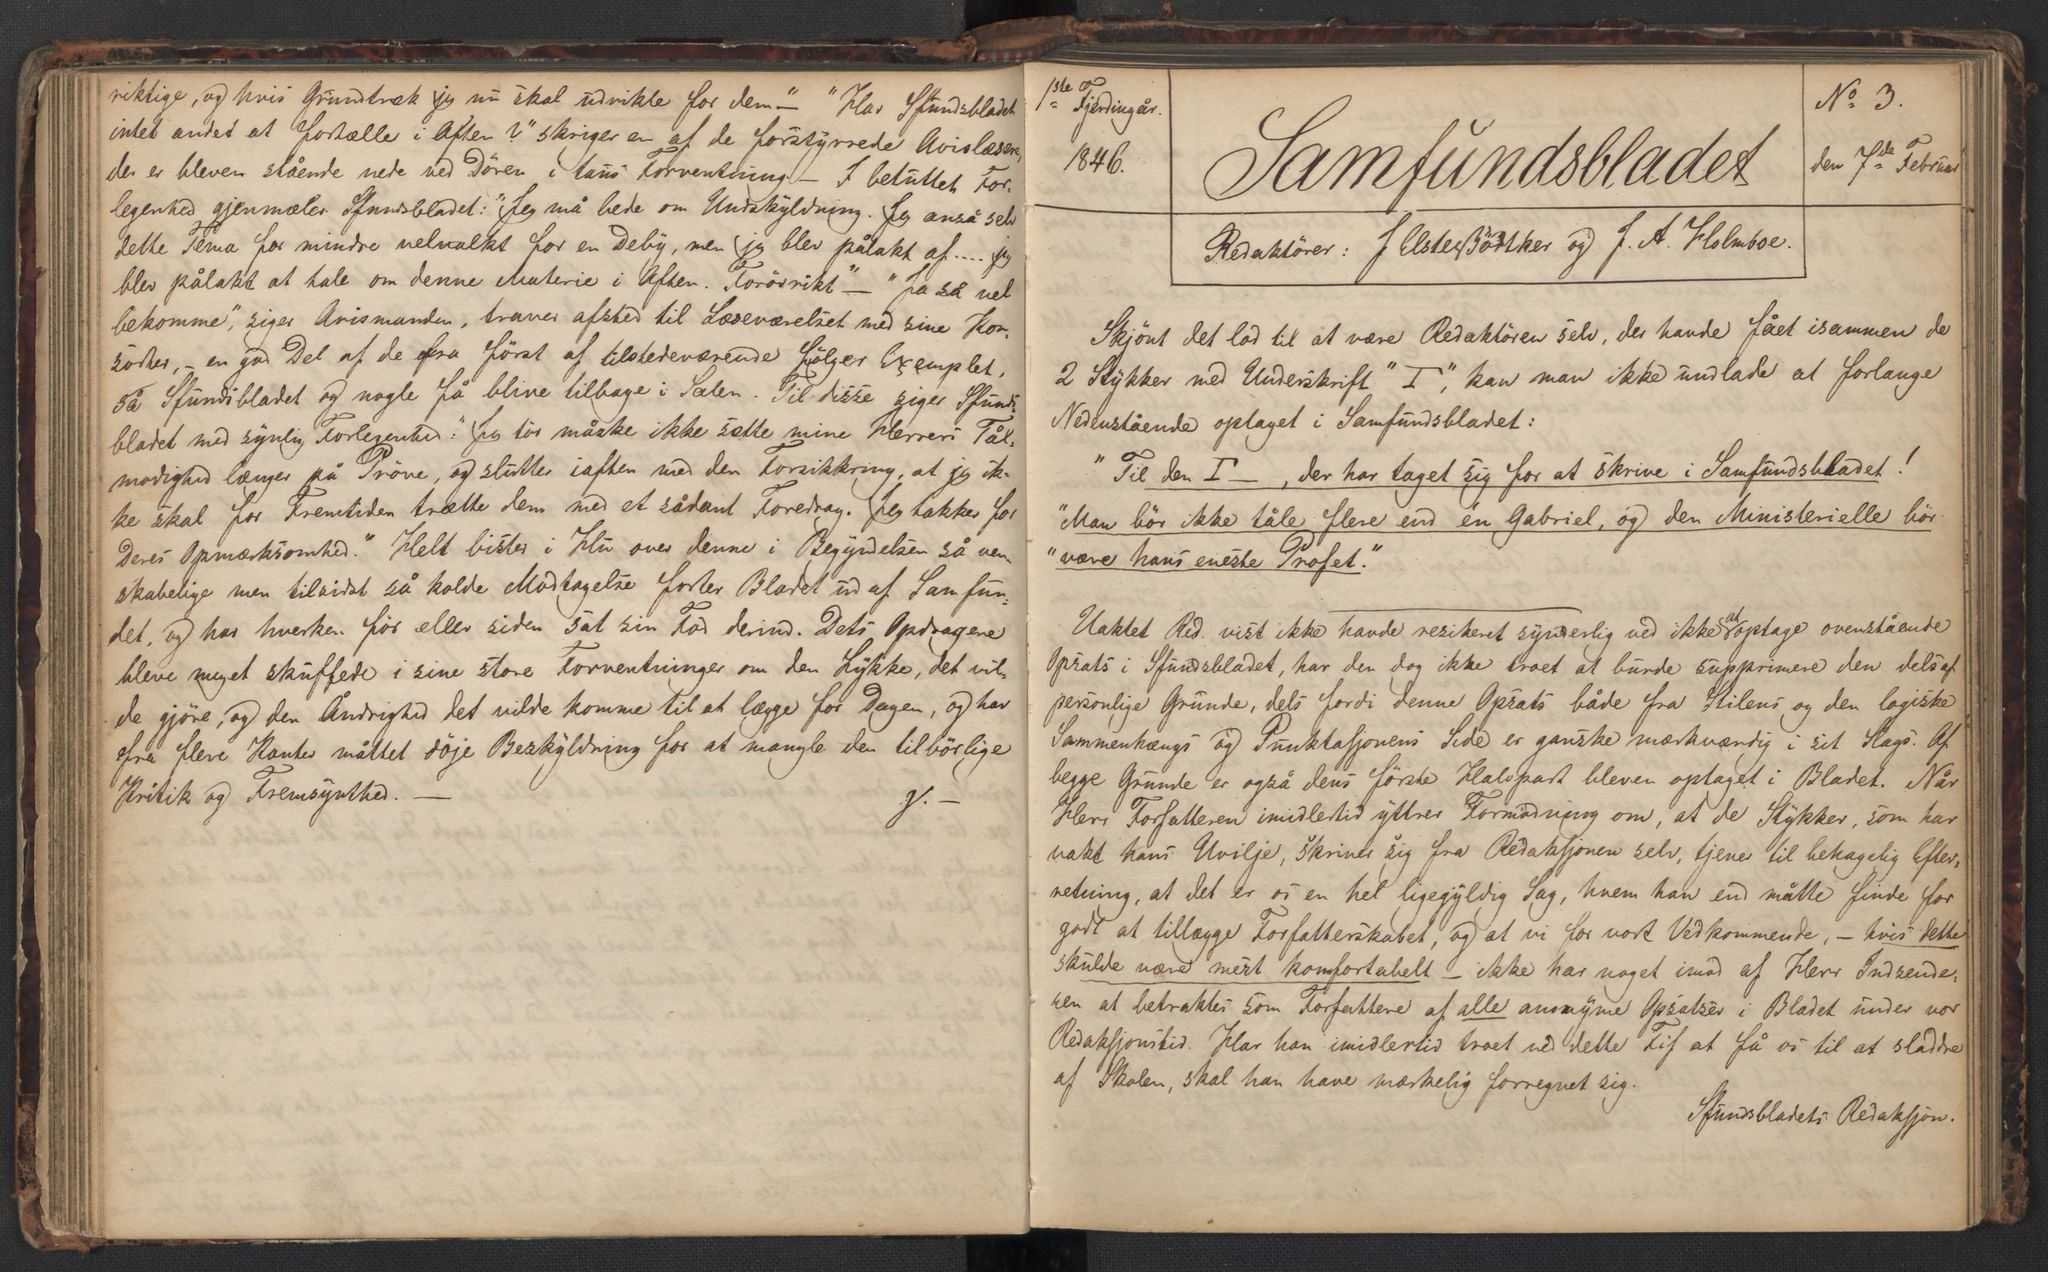 riktige, og hvis Grundtræk jeg nu skal udvikle for dem — " "Har Sfundsbladet
intet andet at fortælle i Aften?" skriger en af de forstyrrede Avislæsere,
der er bleven stående nede ved Dören i taus Forventning — I betuttet For-
legenhed gjenmæler Sfundsbladet: "Jeg må bede om Undskyldning. Jeg anså selv
dette Tema for mindre velvalkt for en Debÿ, men jeg blev pålakt af .... jeg
blev pålakt at tale om denne Materie i Aften. Forövrikt" — "Ja så vel
bekomme", siger Avismanden, traver afsted til Læseværelset med sine Kon-
sorter, — en god Del af de fra först af tilstedeværende fölger Exemplet,
så Sfundsbladet og nogle få blive tilbage i Salen. Til disse siger Sfunds-
bladet med synlig Forlegenhed: "Jeg tör måske ikke sætte mine Herrers Tål-
modighed længer på Pröve, og slutter iaften med den Forsikkring, at jeg ik-
ke skal for Fremtiden trætte dem med et sådant Foredrag. Jeg takker for
Deres Opmærksomhed." Helt bister i Hu over denne i Begyndelsen så ven-
skabelige men tilsidst så kolde Modtagelse forler Bladet ud af Samfun-
det, og har hverken för eller siden sat sin Fod derind. Dets Opdragere
bleve meget skuffede i sine store Forventninger om den Lykke, det vil-
de gjöre, og den Åndrighed det vilde komme til at lægge for Dagen, og har
fra flere Kanter måttet döje Beskyldning for at mangle den tilbörlige
Kritik og Fremsynthed. — g. —
1ste Fjerdingår.
1846.
Samfundsbladet
No 3.
den 7de Februar
Redaktörer: J Elster Bödtker og J. A. Holmboe.
Skjönt det lod til at være Redaktören selv, der havde fået isammen de
2 Stykker med Underskrift "I", kan man ikke undlade at forlange
Nedenstående optaget i Samfundsbladet:
"Til den I —, der har taget sig for at skrive i Samfundsbladet!
"Man bör ikke tåle flere end én Gabriel, og den Ministerielle bör
"være hans eneste Profet."
Uaktet Red. vist ikke havde resikeret synderlig ved ikke at optage ovenstående
Opsats i Sfundsbladet, har den dog ikke troet at burde supprimere den dels af
personlige Grunde, dels fordi denne Opsats både fra Stilens og den logiske
Sammenhængs og Punktasjonens Side er ganske mærkværdig i sit Slags. Af
begge Grunde er også dens förste Halvpart bleven optaget i Bladet. Når
Herr Forfatteren imidlertid yttrer Formodning om, at de Stykker, som har
vakt hans Uvilje, skriver sig fra Redaksjonen selv, tjener til behagelig Efter-
retning, at det er os en hel ligegyldig Sag, hvem han end måtte finde for
godt at tillægge Forfatterskabet, og at vi for vort Vedkommende, — hvis dette
skulde være mest komfortabelt — ikke har noget imod af Herr Indsende-
ren at betraktes som Forfattere af alle anonyme Opsatser i Bladet under vor
Redaksjonstid. Har han imidlertid troet ved dette Fif at få os til at sladdre
af Skolen, skal han have mærkelig forregnet sig.
Sfundsbladets Redaksjon.